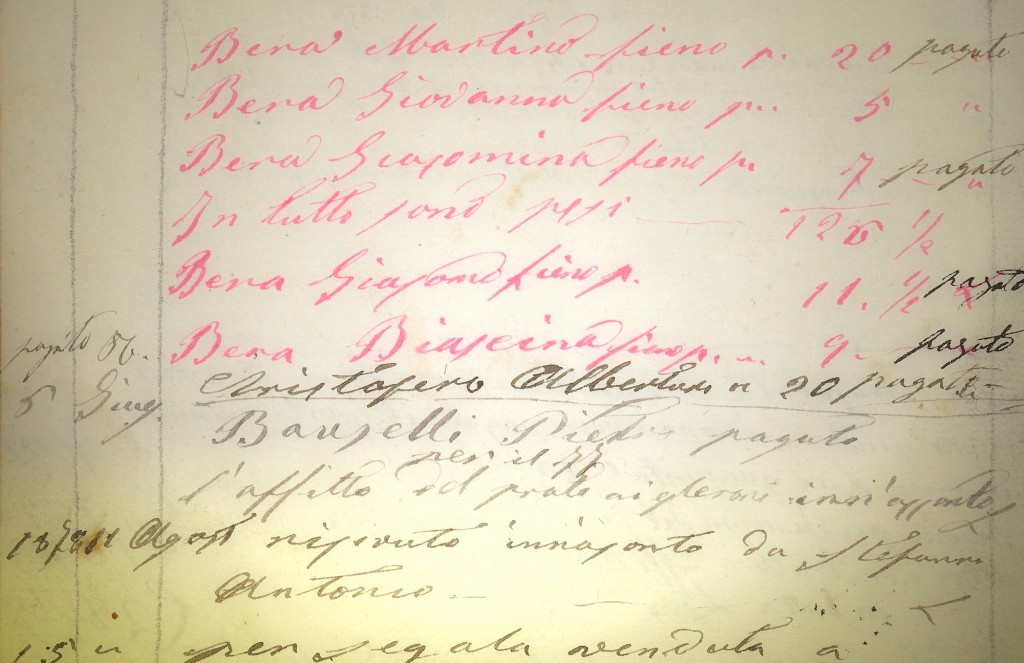 Bera Martino fieno p. 20 pagato
Bera Giovanna fieno p. 5 "
Bera Giasomina fieno p. 7 pagato "
In tutto sono pesi 126 1/2
Bera Giasomo fieno p. 11. 1/2 pagato
pagato 86. Bera Biaseina fieno p. " 9. pagato
Cristoforo Albertoni n 20 pagati
6 Giug. Bauselli Pietro pagato
per il 77
l'affitto del prato
1878 11 Agost risevuto innasonto da Stefanni
Antonio.
15 " per segala venduta a